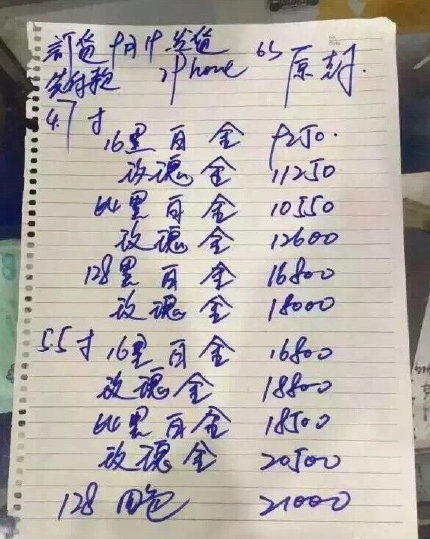 訂货 9月
先付款 iPhone 6S 原封.
4.7寸
16黑白金 9250.
玫瑰金 11250
64黑白金 10550
玫瑰金 12600
128黑白金 16800
玫瑰金 18000
5.5寸 16黑白金 16800
玫瑰金 18800
64黑白金 18500
玫瑰金 20500
128 四色 21000